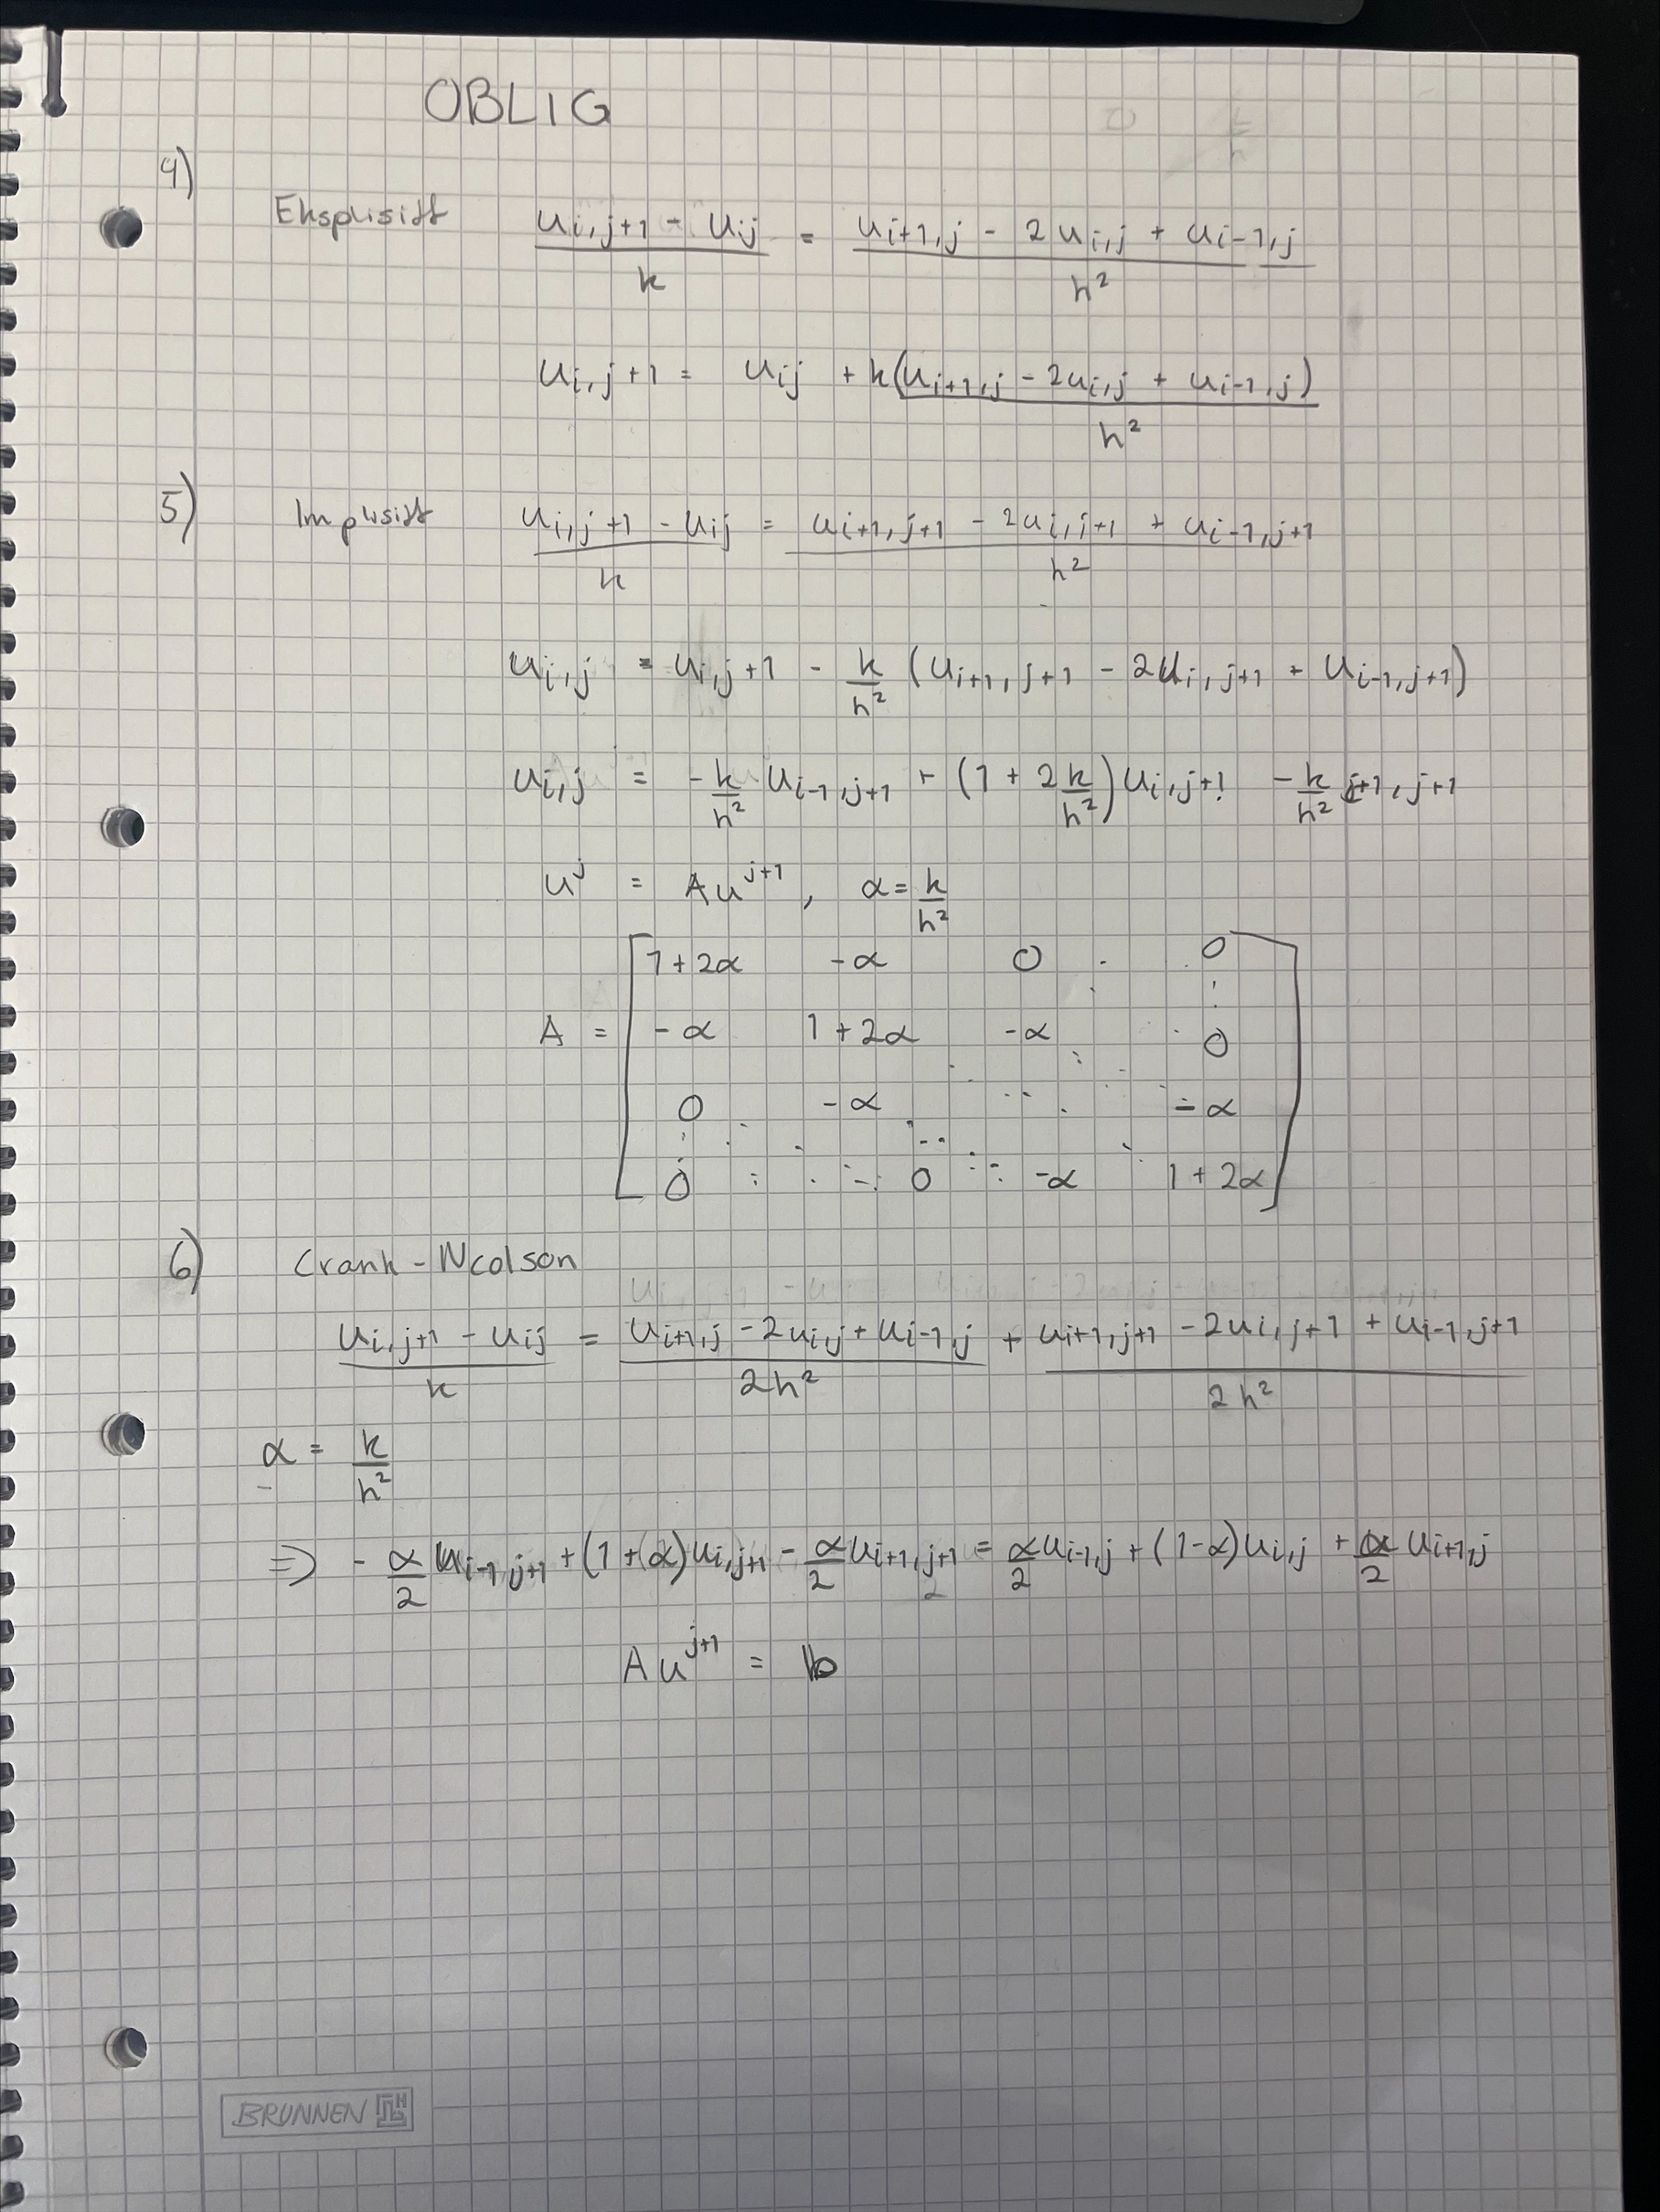 OBLIG
4)
Eksplisitt u_{i,j+1} - u_{ij} / k = u_{i+1,j} - 2u_{i,j} + u_{i-1,j} / h²
u_{i,j+1} = u_{ij} + k(u_{i+1,j} - 2u_{i,j} + u_{i-1,j}) / h²
5) Implisitt u_{i,j+1} - u_{ij} / k = u_{i+1,j+1} - 2u_{i,j+1} + u_{i-1,j+1} / h²
u_{i,j} = u_{i,j+1} - k/h² (u_{i+1,j+1} - 2u_{i,j+1} + u_{i-1,j+1})
u_{i,j} = -k/h² u_{i-1,j+1} + (1 + 2k/h²) u_{i,j+1} - k/h² i+1,j+1
u^j = Au^{j+1}, α = k/h²
A = [ 1+2α -α 0 . . 0
-α 1+2α -α . 0
0 -α ⋱ -α
0 . . . 0 ⋱ -α 1+2α ]
6) Crank-Ncolson
u_{i,j+1} - u_{ij} / k = u_{i+1,j} - 2u_{i,j} + u_{i-1,j} / 2h² + u_{i+1,j+1} - 2u_{i,j+1} + u_{i-1,j+1} / 2h²
α = k/h²
⇒ -α/2 u_{i-1,j+1} + (1+(α)u_{i,j+1} - α/2 u_{i+1,j+1} = α/2 u_{i-1,j} + (1-α)u_{i,j} + α/2 u_{i+1,j}
Au^{j+1} = b
BRUNNEN